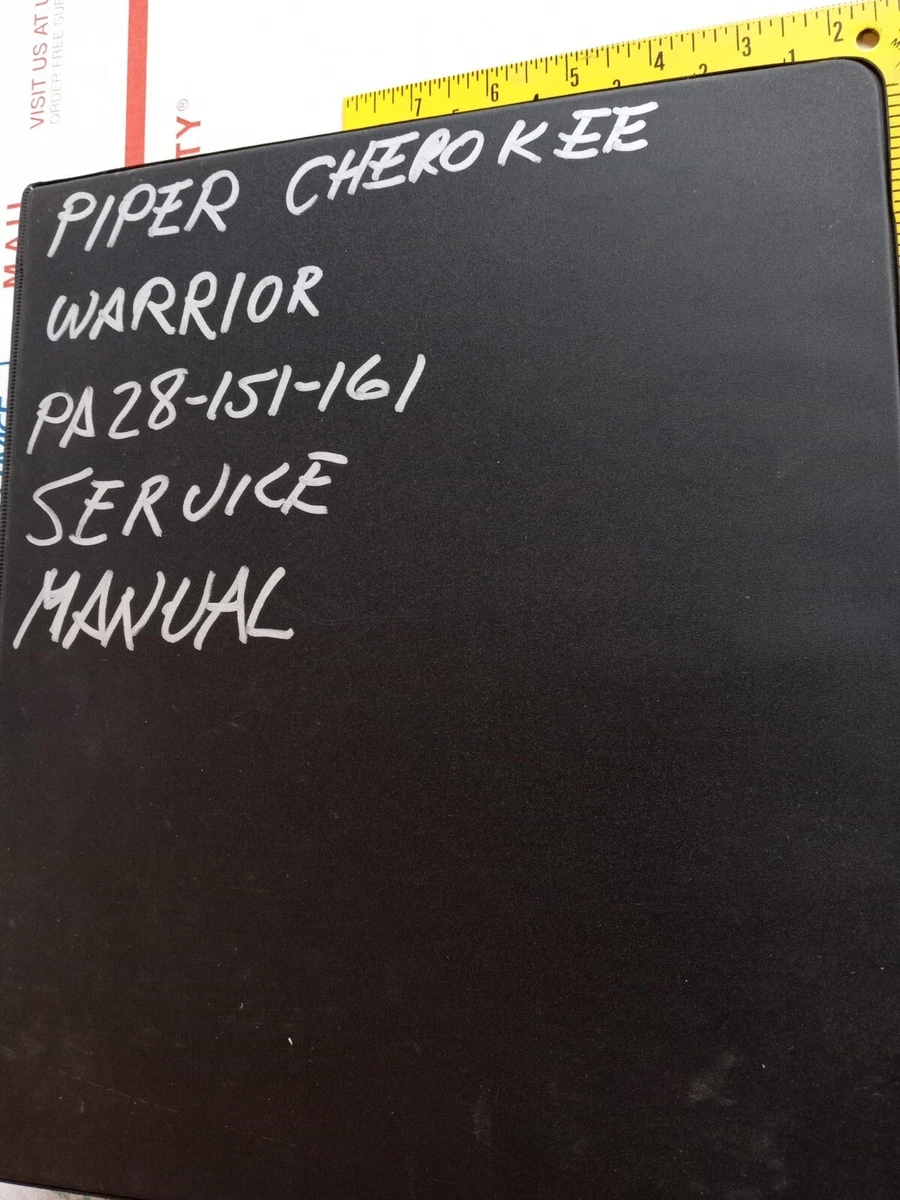 VISIT US AT U
ORDER FREE SUP
TY®
MAIL
7 6 5 4 3 2
PIPER CHEROKEE
WARRIOR
PA28-151-161
SERVICE
MANUAL